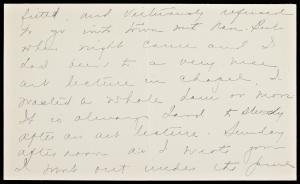 and virtuously refused
to go into town with
when night came and I
had been to a very nice
art lecture in chapel, I
wasted a whole hour or more
It is always hard to study
after an art lecture. Sunday
afternoon as I wrote you
I went out under the